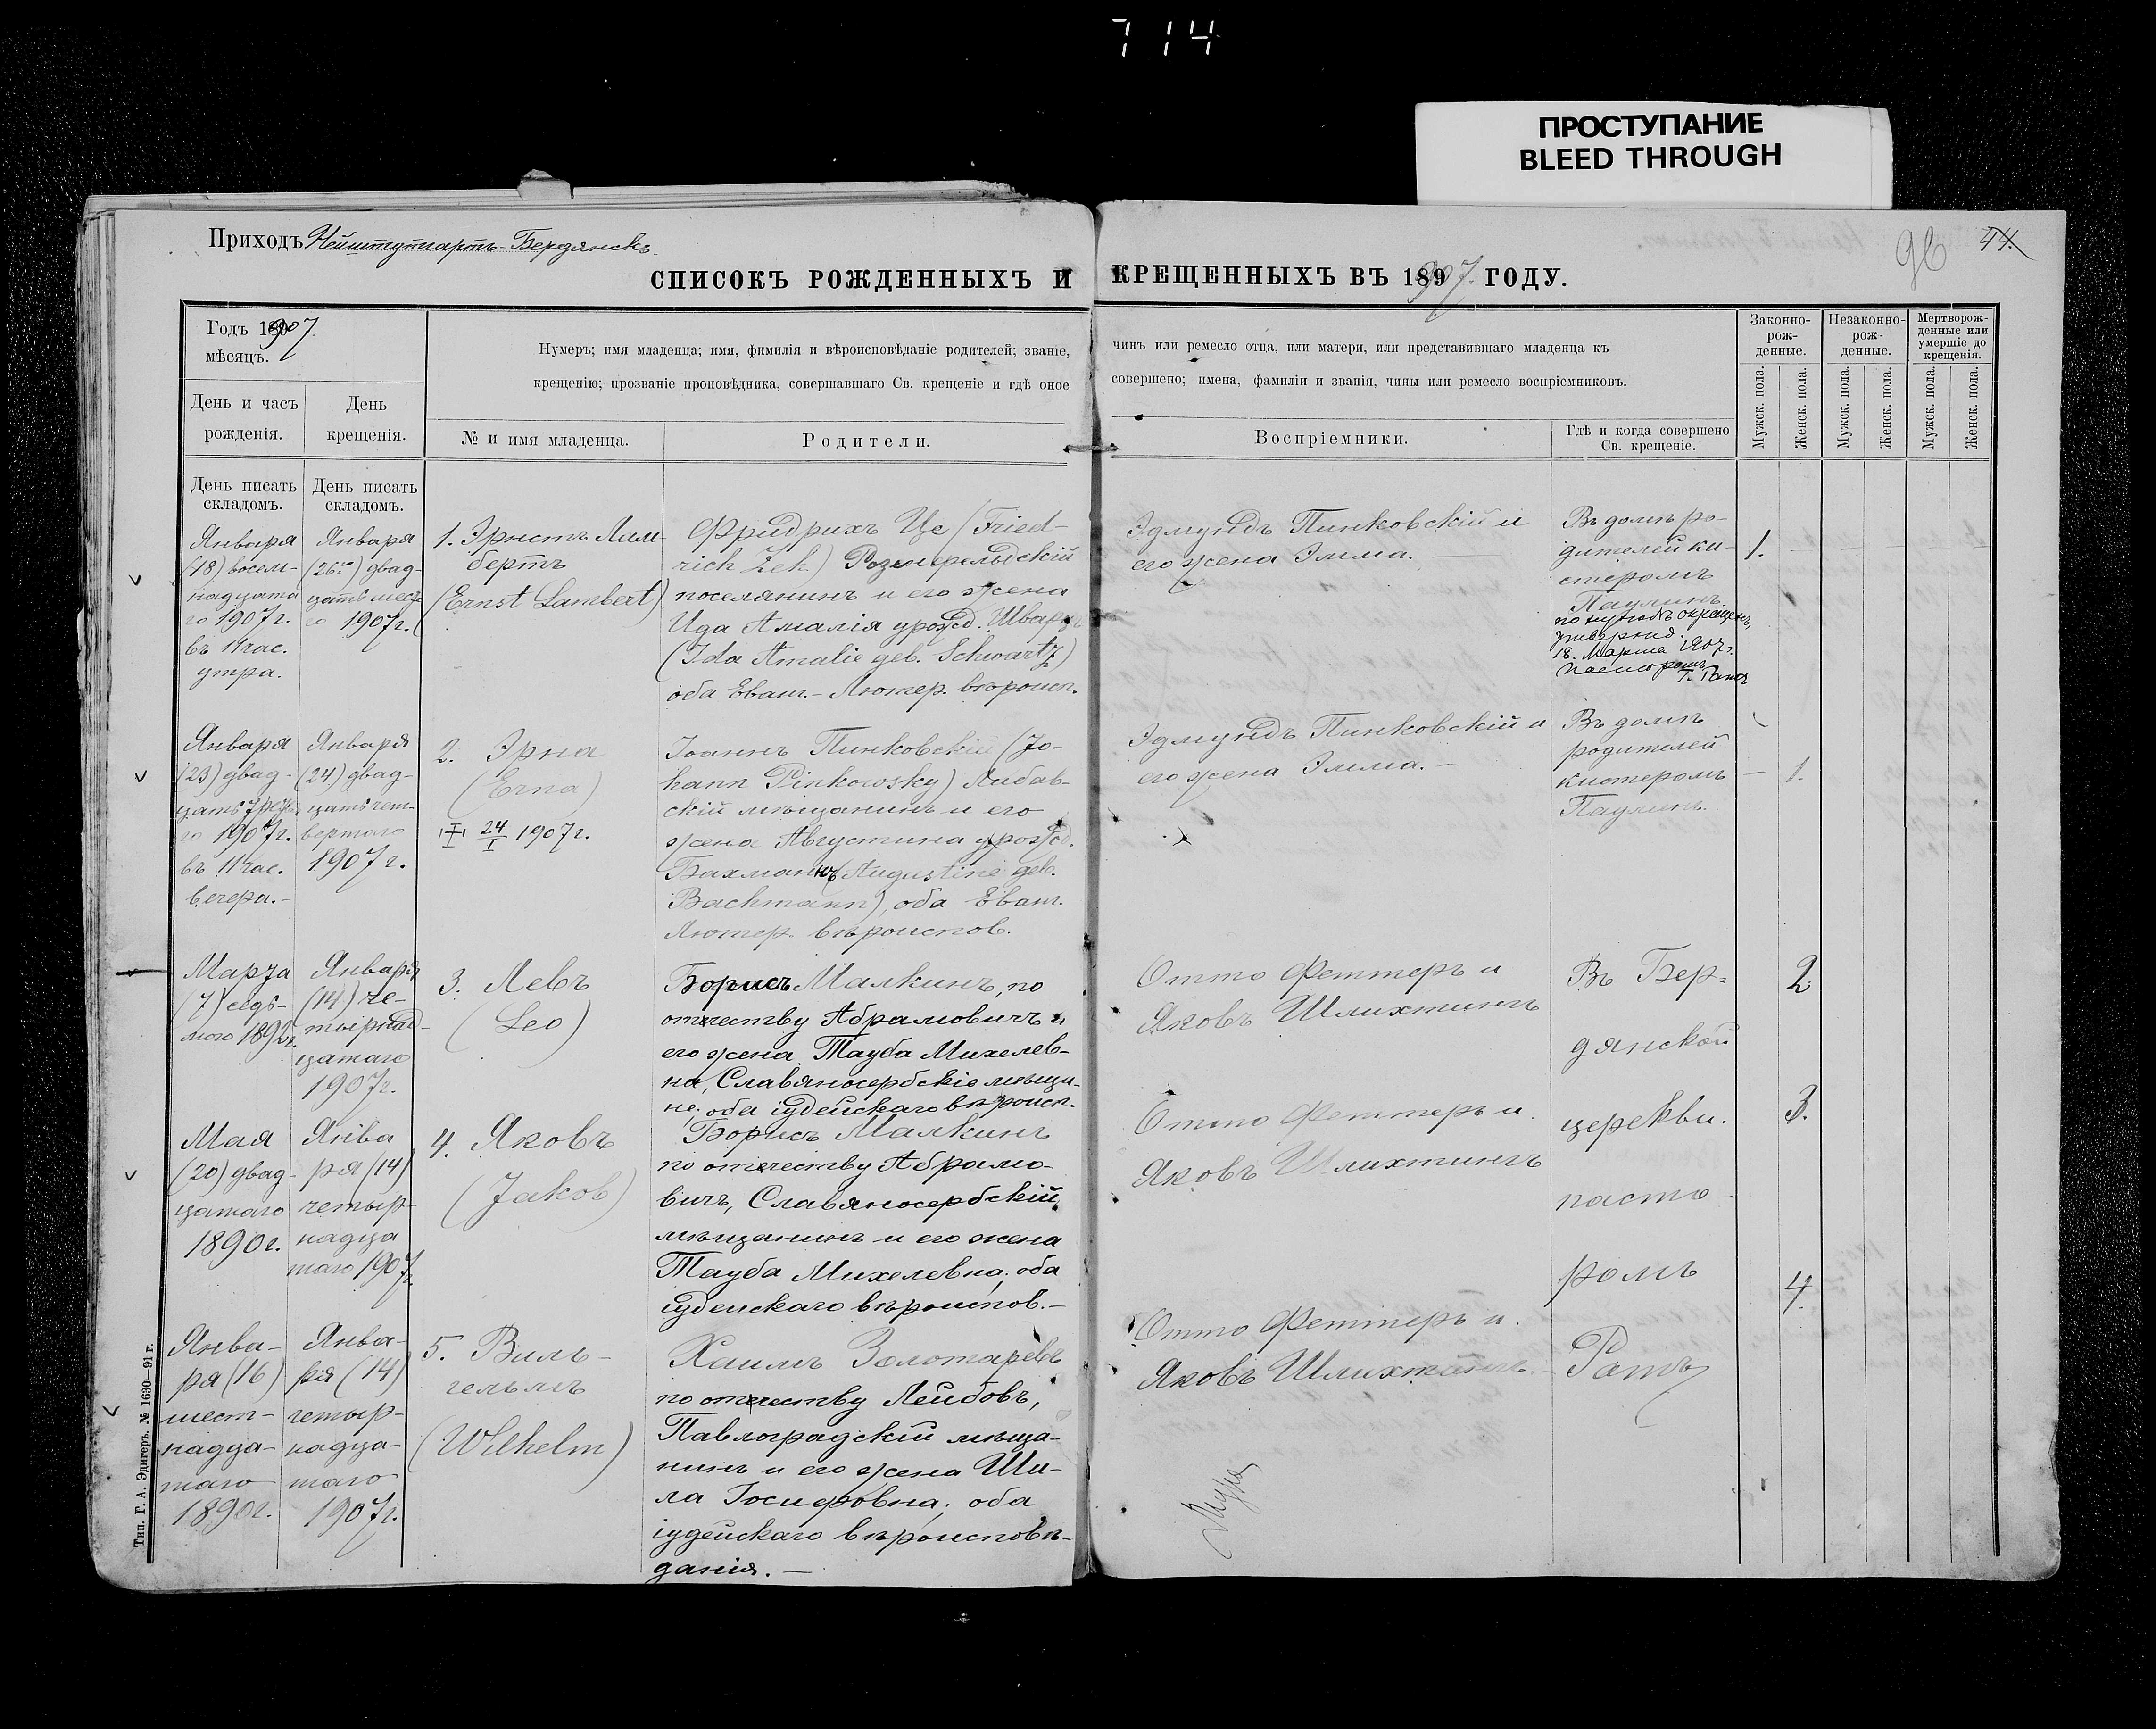 714
ПРОСТУПАНИЕ
BLEED THROUGH
Приходъ Нейштутгартъ-Бердянскъ.
96 44.
СПИСОКЪ РОЖДЕННЫХЪ И КРЕЩЕННЫХЪ ВЪ 189 907. ГОДУ.
Годъ 1907
мѣсяцъ.
День и часъ
рожденія.
День
крещенія.
Нумеръ; имя младенца; имя, фимилія и вѣроисповѣданіе родителей; званіе, чинъ или ремесло отца, или матери, или представившаго младенца къ
крещенію; прозваніе проповѣдника, совершавшаго Св. крещеніе и гдѣ оное совершено; имена, фамиліи и званія, чины или ремесло воспріемниковъ.
№ и имя младенца.
Родители.
Воспріемники.
Гдѣ и когда совершено
Св. крещеніе.
Законно-
рож-
денные.
Незаконно-
рож-
денные.
Мертворож-
денные или
умершіе до
крещенія.
Мужск. пола.
Женск. пола.
Мужск. пола.
Женск. пола.
Мужск. пола.
Женск. пола.
День писать
складомъ.
День писать
складомъ.
Января
(18) восем-
надцата
го 1907 г.
въ 11 час.
утра.
Января
(26го) двад-
цать шест
го 1907 г.
1. Эрнстъ Лам-
бертъ
(Ernst Lambert)
Фридрихъ Це (Fried-
rich Zeh) Розенфельдскій
поселянинъ и его жена
Ида Амалія урожд. Шварцъ
(Ida Amalie geb. Schwartz)
оба Еванг.-Лютер. вѣроисп.
Эдмундъ Пинковскій и
его жена Элма.
Въ домѣ ро-
дителей ки-
стеромъ
Паулинъ.
по нуждѣ окрещенъ,
утвержд.
18. Марта 1907 г.
пасторомъ
1.
Января
(23) двад-
цать треть
го 1907 г.
въ 11 час.
вечера.-
Января
(24) двад-
цать чет-
вертаго
1907 г.
2. Эрна
(Erna)
24/I 1907 г.
Іоаннъ Пинковскій (Jo-
hann Pinkowsky) Либав-
скій мѣщанинъ и его
жена Августина урожд.
Бахманъ (Augustine geb.
Bachmann), оба Еванг.
Лютер. вѣроиспов.
Эдмундъ Пинковскій и
его жена Элма. —
Въ домѣ
родителей
кистеромъ
Паулинъ.
— 1.
Марта
(7) седь-
мого 1892 г.
Января
(14) че-
тырнад-
цатаго
1907 г.
3. Левъ
(Leo)
Борисъ Малкинъ, по
отчеству Абрамовичъ и
его жена Тауба Михелев-
на, Славяносербскіе мѣща-
не, оба іудейскаго вѣроисп.
Отто Феттеръ и
Яковъ Шлихтингъ
Въ Бер-
дянской
церкви.
пасто
ромъ
Ратъ
2.
Мая
(20) двад-
цатаго
1890 г.
Янва
ря (14)
четыр-
надца
таго 1907 г.
4. Яковъ
(Jakob)
Борисъ Малкинъ
по отчеству Абрамо-
вичъ, Славяносербскій
мѣщанинъ и его жена
Тауба Михелевна, оба
іудейскаго вѣроиспов.—
Отто Феттеръ и
Яковъ Шлихтингъ
3.
Янва-
ря (16)
шест-
надца-
таго
1890 г.
Янва-
ря (14)
четыр-
надца-
таго
1907 г.
5. Виль-
гельмъ
(Wilhelm)
Хаимъ Золотаревъ
по отчеству Лейбовъ,
Павлоградскій мѣща-
нинъ и его жена Ши-
ла Іосифовна; оба
іудейскаго вѣроисповѣ-
данія. —
Отто Феттеръ и
Яковъ Шлихтингъ.
4.
Тип. Г. А. Эдигеръ. № 1630—91 г.